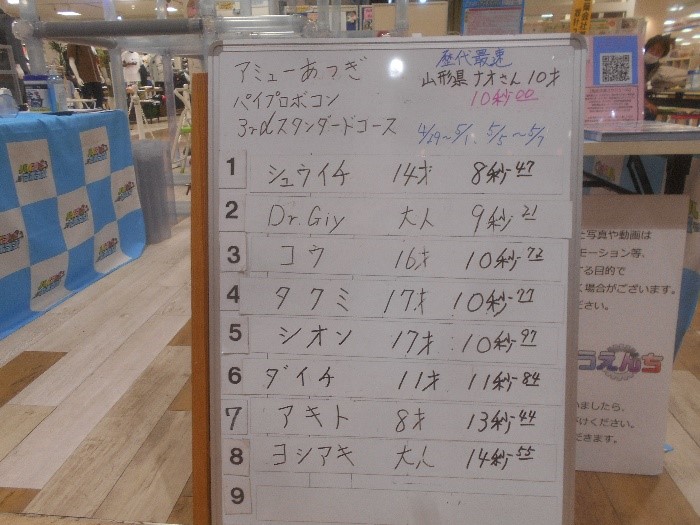 アミューあつぎ
パイプロボコン
3rdスタンダードコース
歴代最速
山形県 ナオさん 10才
10秒00
4/29~5/1、5/5~5/7
1 シュウイチ 14才 8秒47
2 Dr.Giy 大人 9秒21
3 コウ 16才 10秒72
4 タクミ 17才 10秒77
5 シオン 17才 10秒97
6 ダイチ 11才 11秒84
7 アキト 8才 13秒44
8 ヨシアキ 大人 14秒55
9
と写真や動画は
モーション等、
する目的で
く場合がございます。
ださい。
うえんち
いましたら、
がけください。
だきます。